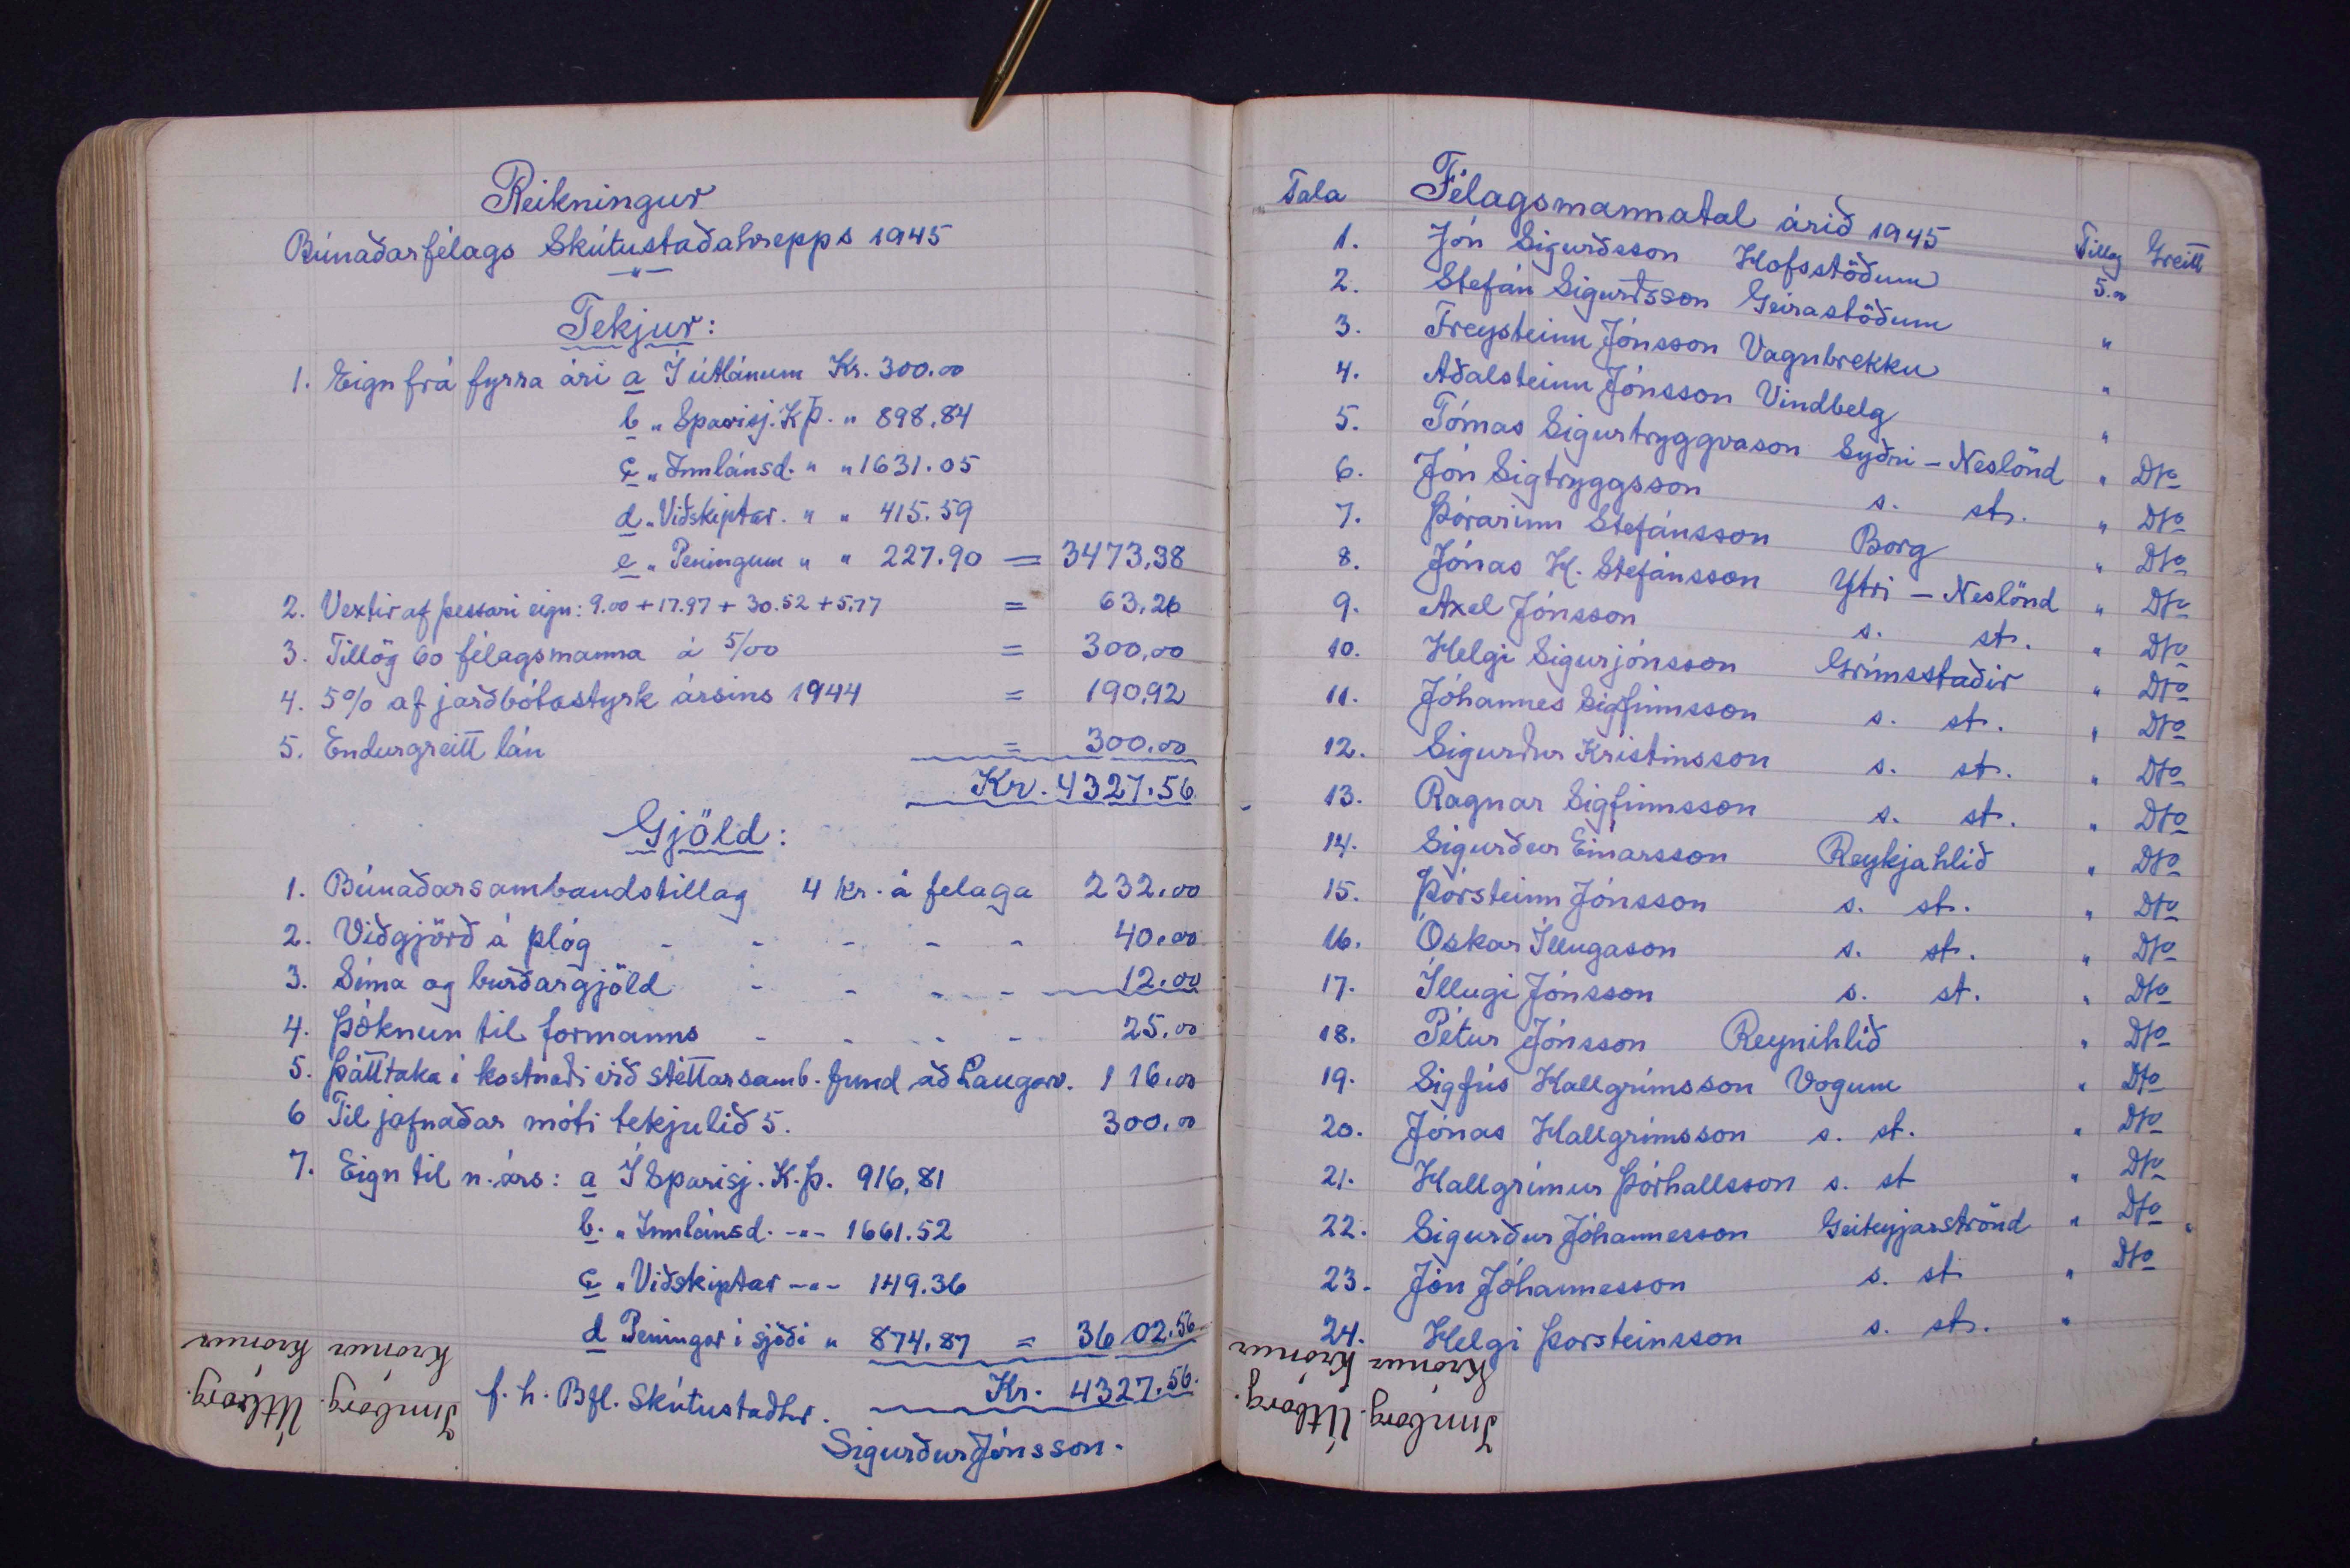 Reikningur
Búnaðarfélags Skútustaðahrepps 1945
Tekjur:
1. Eign frá fyrra ári a Í útlánum Kr. 300.00
b „ Sparisj. K.Þ. „ 898.84
c „ Innlánsd. „ „ 1631.05
d „ Viðskiptar. „ „ 415.59
e „ Peningum „ „ 227.90 = 3473.38
2. Vextir af þessari eign: 9.00 + 17.97 + 30.52 + 5.77 = 63.26
3. Tillög 60 félagsmanna á 5/00 = 300.00
4. 5% af jarðbótastyrk ársins 1944 = 190.92
5. Endurgreitt lán = 300.00
Kr. 4327.56
Gjöld:
1. Búnaðarsambandstillag 4 kr. á felaga 232.00
2. Viðgjörð á plóg - - - - - 40.00
3. Síma og burðargjöld - - - - 12.00
4. Þóknun til formanns - - - - 25.00
5. Þátttaka í kostnaði við stéttarsamb. fund að Laugarv. 116.00
6 Til jafnaðar móti tekjulið 5. 300.00
7. Eign til n. árs: a Í Sparisj. K.Þ. 916,81
b. „ Innlánsd. -„- 1661.52
c „ Viðskiptar -„- 149.36
d Peningar í sjóði „ 874.87 = 3602.56
Kr. 4327.56.
f. h. Bfl. Skútustaðhr.
Sigurður Jónsson.
Innborg. Útborg.
Krónur Krónur
Tala Félagsmannatal árið 1945 Tillag Greitt
1. Jón Sigurðsson Hofsstöðum 5.00
2. Stefán Sigurðsson Geirastöðum „
3. Freysteinn Jónsson Vagnbrekku „
4. Aðalsteinn Jónsson Vindbelg „
5. Tómas Sigurtryggvason Syðri-Neslönd „ Dto
6. Jón Sigtryggsson s. st. „ Dto
7. Þórarinn Stefánsson Borg „ Dto
8. Jónas H. Stefánsson Ytri-Neslönd „ Dto
9. Axel Jónsson s. st. „ Dto
10. Helgi Sigurjónsson Grímsstaðir „ Dto
11. Jóhannes Sigfinnsson s. st. „ Dto
12. Sigurður Kristinsson s. st. „ Dto
13. Ragnar Sigfinnsson s. st. „ Dto
14. Sigurður Einarsson Reykjahlíð „ Dto
15. Þorsteinn Jónsson s. st. „ Dto
16. Óskar Illugason s. st. „ Dto
17. Illugi Jónsson s. st. „ Dto
18. Pétur Jónsson Reynihlíð „ Dto
19. Sigfús Hallgrímsson Vogum „ Dto
20. Jónas Hallgrímsson s. st. „ Dto
21. Hallgrímur Þórhallsson s. st „ Dto
22. Sigurður Jóhannesson Geiteyjarströnd „ Dto
23. Jón Jóhannesson s. st „ Dto
24. Helgi Þorsteinsson s. st. „
Innborg. Útborg.
Krónur Krónur